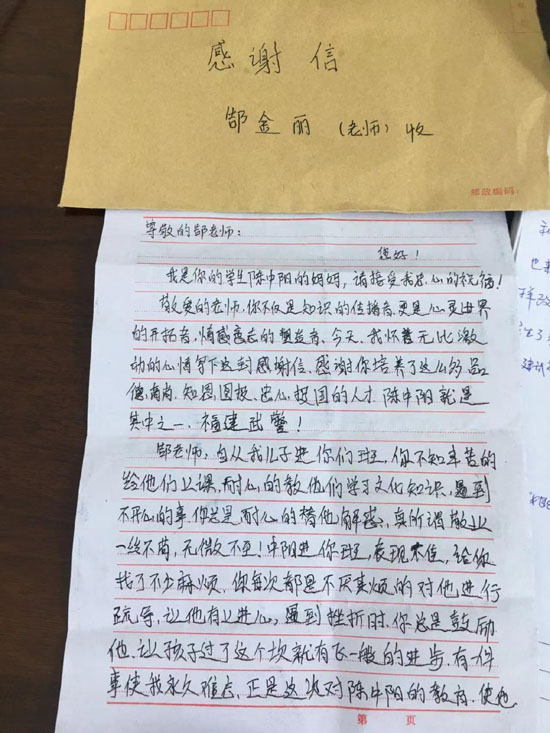 感谢信
郜金丽（老师）收
邮政编码：
尊敬的郜老师：
您好！
我是你的学生陈中阳的妈妈，请接受我衷心的祝福！
敬爱的老师，你不仅是知识的传播者，更是心灵世界
的开拓者，情感意志的塑造者、今天、我怀着无比激
动的心情写下这封感谢信、感谢你培养了这么多品
德高尚、知恩图报、忠心报国的人才、陈中阳就是
其中之一、福建武警！
郜老师，自从我儿子进你们班，你不知辛苦的
给他们上课，耐心的教他们学习文化知识，遇到
不开心的事，你总是耐心的替他解惑，真所谓敬业
一丝不苟，无微不至！中阳进你班，表现不佳，给你
找了不少麻烦，你每次都是不厌其烦的对他进行
疏导，让他有上进心，遇到挫折时，你总是鼓励
他，让孩子过了这个坎就有飞一般的进步，有一件
事使我永久难忘，正是这次对陈中阳的教育，使他
第 页